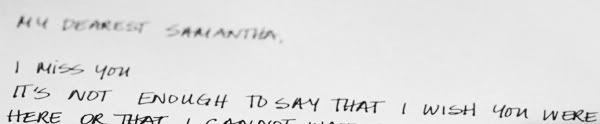 MY DEAREST SAMANTHA,
I MISS YOU
IT'S NOT ENOUGH TO SAY THAT I WISH YOU WERE
HERE OR THAT I CANNOT